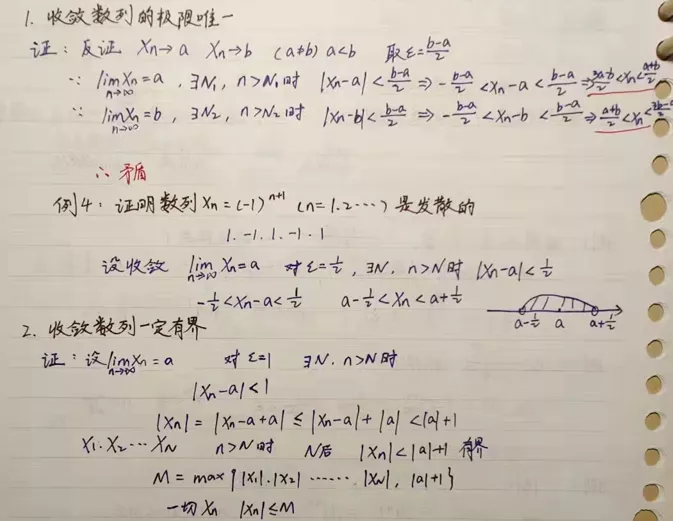 1. 收敛数列的极限唯一
证：反证 Xn→a Xn→b (a≠b) a<b 取ε=(b-a)/2
∵ lim n→∞ Xn=a , ∃N₁, n>N₁时 |Xn-a|<(b-a)/2 ⇒ -(b-a)/2 <Xn-a< (b-a)/2 ⇒ (3a-b)/2 <Xn< (a+b)/2
∵ lim n→∞ Xn=b , ∃N₂, n>N₂时 |Xn-b|<(b-a)/2 ⇒ -(b-a)/2 <Xn-b< (b-a)/2 ⇒ (a+b)/2 <Xn<
∴ 矛盾
例4：证明数列Xn=(-1)^(n+1) (n=1.2⋯) 是发散的
1. -1. 1. -1. 1
设收敛 lim n→∞ Xn=a 对ε=1/2, ∃N. n>N时 |Xn-a|<1/2
-1/2<Xn-a<1/2 a-1/2<Xn<a+1/2
a-1/2 a a+1/2
2. 收敛数列一定有界
证：设lim n→∞ Xn=a 对ε=1 ∃N. n>N时
|Xn-a|<1
|Xn|=|Xn-a+a|≤|Xn-a|+|a|<|a|+1
X1.X2⋯XN n>N时 N后 |Xn|<|a|+1 有界
M=max{|X1|.|X2| ⋯⋯ |XN|, |a|+1}
一切Xn |Xn|≤M